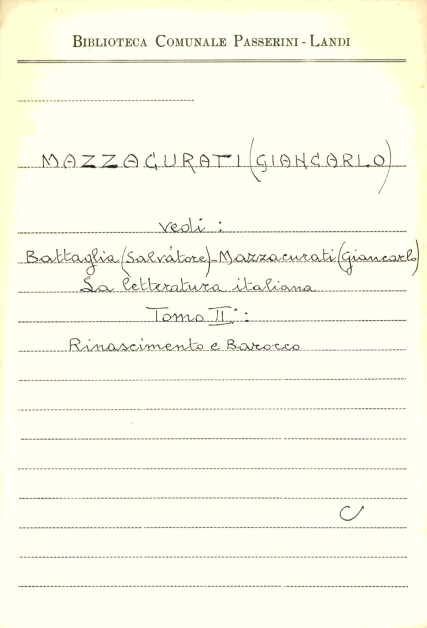 BIBLIOTECA COMUNALE PASSERINI - LANDI
MAZZACURATI (GIANCARLO)
vedi :
Battaglia (Salvatore) - Mazzacurati (Giancarlo)
La letteratura italiana
Tomo II° :
Rinascimento e Barocco
C